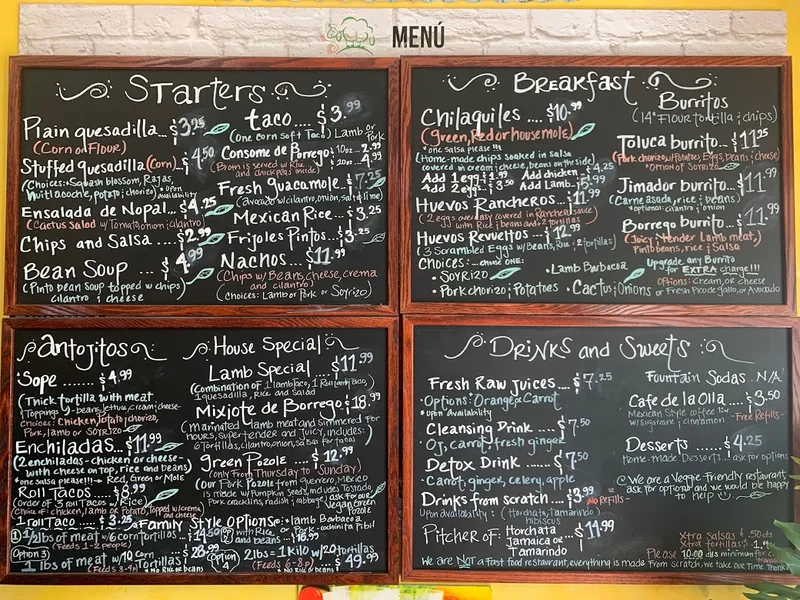 MENÚ
Starters
Plain quesadilla... $3.25
(Corn or Flour)
Stuffed quesadilla (Corn) $4.50
(Choices: Squash blossom, Rajas,
Huitlacoche, potato; chorizo) • upon availability
Ensalada de Nopal... $4.25
(Cactus Salad w/ Tomato, onion; cilantro)
Chips and Salsa ... $2.99
Bean Soup ... $4.99
(Pinto bean soup topped w/ chips
cilantro ; cheese
taco.... $3.99
(One corn soft taco) Lamb or Pork
Consome de Borrego: 10oz... 2.99
4.99
(Broth is served w/ Rice
and chickpeas inside)
Fresh guacamole... $7.25
(avocado w/ cilantro, onion, salt ; lime)
Mexican Rice... $3.25
Frijoles Pintos... $3.25
Nachos ..... $11.99
(Chips w/ Beans, cheese, crema
and cilantro)
(Choices: Lamb or Pork or Soyrizo)
Breakfast
Chilaquiles .... $10.99
(green, Red or house mole)
• one salsa please!!!
(Home-made chips soaked in salsa
covered in cream ; cheese, beans on the side)
Add 1 Egg: $1.99 Add chicken... $4.25
Add 2 eggs: $3.50 Add Lamb... 5.99
Huevos Rancheros.... $11.99
(2 eggs over easy covered in Ranchera sauce
with Rice ; beans and 2 tortillas)
Huevos Revueltos ... $12.99
(3 Scrambled Eggs w/ Beans, Rice ; 2 tortillas)
Choices: ...choose ONE:
• Soyrizo
• Lamb Barbacoa
• Pork chorizo ; Potatoes
• Cactus ; Onions
Burritos
(14" Flour tortilla ; chips)
Toluca burrito... $11.25
(Pork chorizo w/ Potatoes, Eggs, beans ; cheese)
Option of Soyrizo
Jimador burrito... $11.99
(Carne asada, rice ; beans)
• optional: cilantro ; onion
Borrego burrito... $11.99
(Juicy, tender Lamb meat,
Pinto beans, rice ; Salsa
Upgrade any Burrito
for EXTRA charge!!!
Options: Cream, or cheese
or Fresh Pico de gallo, or Avocado
Antojitos
Sope ....... $4.99
(Thick tortilla with meat
Toppings: beans, lettuce, cream ; cheese
choices: Chicken, Potato ; chorizo,
Pork, lamb or Soyrizo
Enchiladas... $11.99
(2 enchiladas - chicken or cheese -
with cheese on top, rice and beans)
• one salsa please!!! • Red, Green or Mole
Roll Tacos ... $8.99
(order of 3 roll tacos w/ Rice)
(Choice of: chicken, lamb or Potato, topped w/ crema
and cheese)
1 roll Taco ... $3.25
House Special
Lamb Special .... $11.99
(Combination of 1 lamb taco, 1 Roll lamb taco,
1 quesadilla, Rice and Salad
Mixiote de Borrego: $18.99
(marinated lamb meat and simmered for
hours, super tender and juicy, includes:
6 Tortillas, cilantro, onion, salsas for tacos
Green Pozole ... $12.99
(only From Thursday to Sunday)
(Our Pork Pozole from guerrero, México
is made w/ Pumpkin Seeds, includes Tostada,
Pork cracklins, radish ; cabbage)
ask for our Vegan Green Pozole
★Family Style Options: • lamb Barbacoa
• cochinita Pibil
1/2 lbs of meat w/ 6 corn tortillas
(Feeds 1-2 people)
Option 3
1 lbs of meat w/ 10 Corn Tortillas $28.99
• No Rice or beans
Option 4
2 lbs = 1 Kilo w/ 20 tortillas
(Feeds 6-8 p)
• No Rice or beans
$49.99
Drinks and Sweets
Fresh Raw Juices.... $7.25
• Options: Orange ; Carrot
• upon availability
Cleansing Drink ... $7.50
• OJ, carrot, fresh ginger
Detox Drink .... $7.50
• Carrot, ginger, celery, apple
Drinks from scratch... $3.99 NO Refills -
Upon availability: (Horchata, Tamarindo)
hibiscus
Pitcher of: Horchata
Jamaica or
Tamarindo
$11.99
Fountain Sodas... N/A
Cafe de la Olla ... $3.50
Mexican Style coffee 12oz
w/ Sugarcane ; cinnamon
-Free Refills-
Desserts ..... $4.25
Home-made Desserts... ask for options
We are a Veggie-Friendly restaurant,
ask for options and we would be happy
to help
Xtra salsas $.50cts
Xtra tortillas
Please 10.00 dlls minimum for
We are NOT a Fast food restaurant, everything is made From scratch, we take our Time Thanks